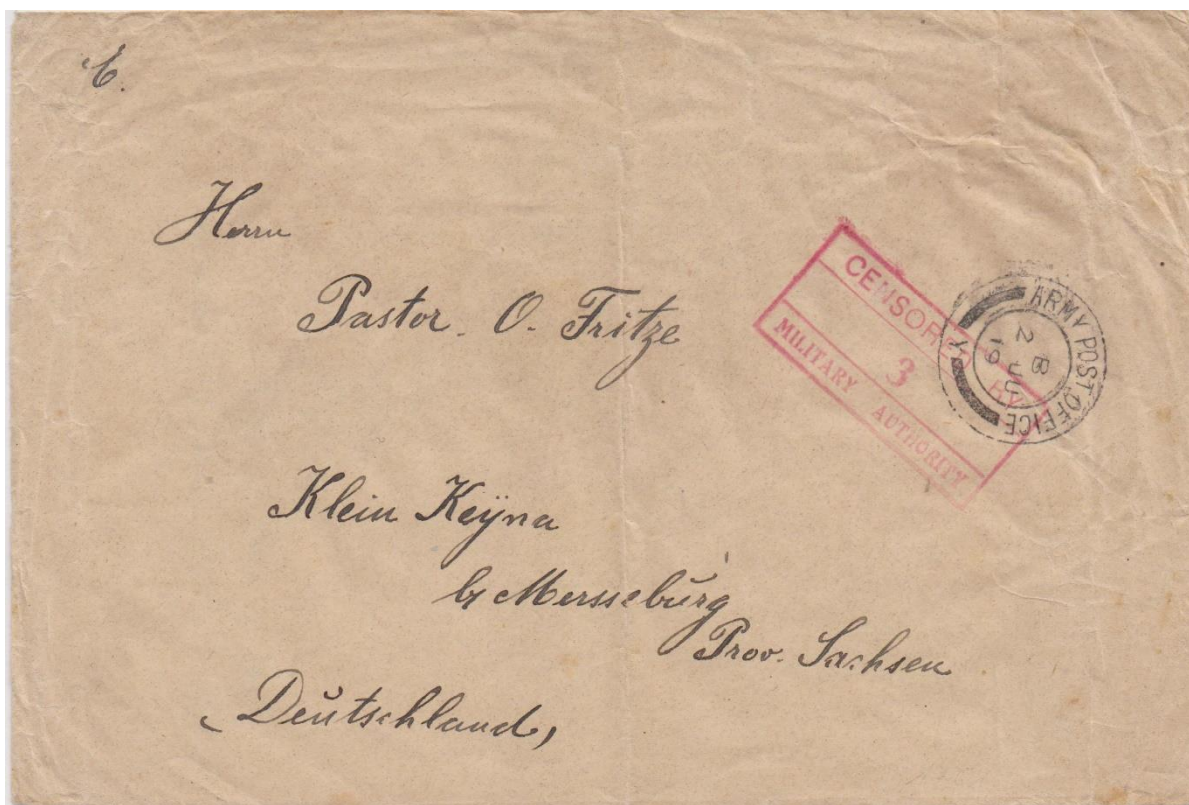 E.
Herrn
Pastor. O. Fritze
Klein Keÿna
b/ Mersseburg
Prov. Sachsen
(Deutschland)
CENSORED BY
3
MILITARY AUTHORITY
ARMY POST OFFICE
B
2 JU
19
Y